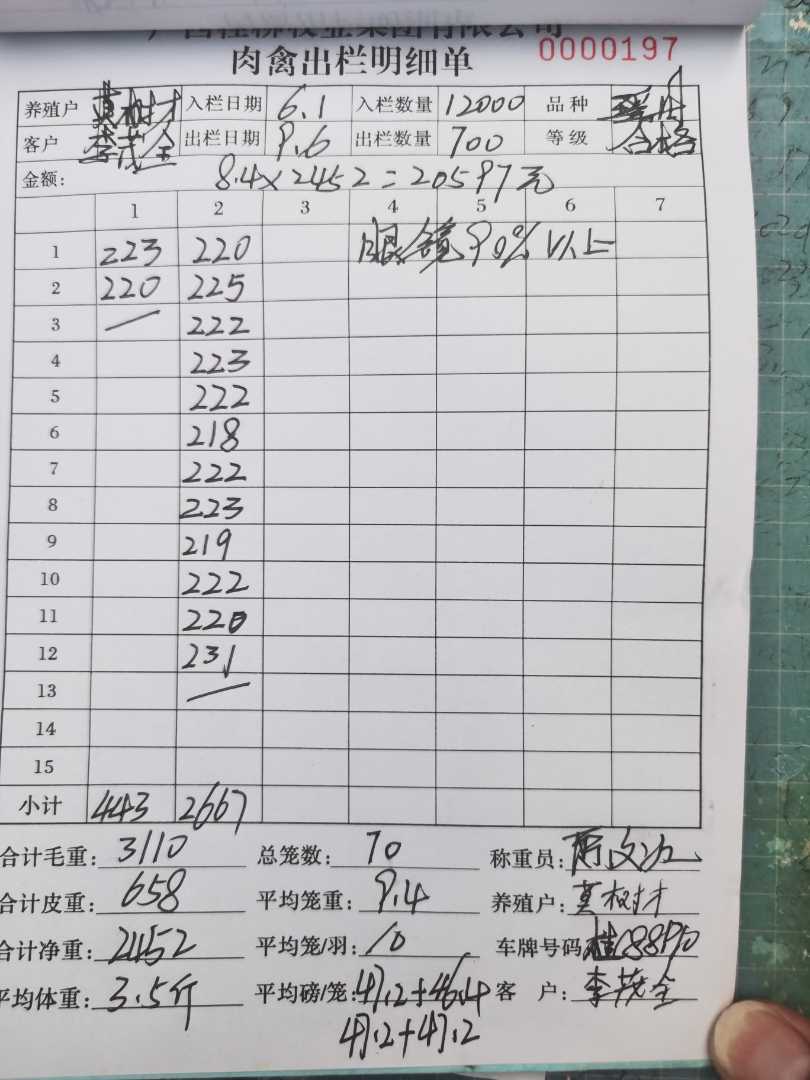 肉禽出栏明细单 0000197
养殖户 莫树才 入栏日期 6.1 入栏数量 12000 品种
客户 李茂全 出栏日期 9.6 出栏数量 700 等级 合格
金额: 8.4×2452=20597元
1 2 3 4 5 6 7
1 223 220 眼镜90%以上
2 220 225
3 222
4 223
5 222
6 218
7 222
8 223
9 219
10 222
11 220
12 231
13
14
15
小计 443 2667
合计毛重: 3110 总笼数: 70 称重员:
合计皮重: 658 平均笼重: 9.4 养殖户: 莫树才
合计净重: 2452 平均笼/羽: 10 车牌号码
平均体重: 3.5斤 平均磅/笼: 47.2+46.4 客 户: 李茂全
47.2+47.2